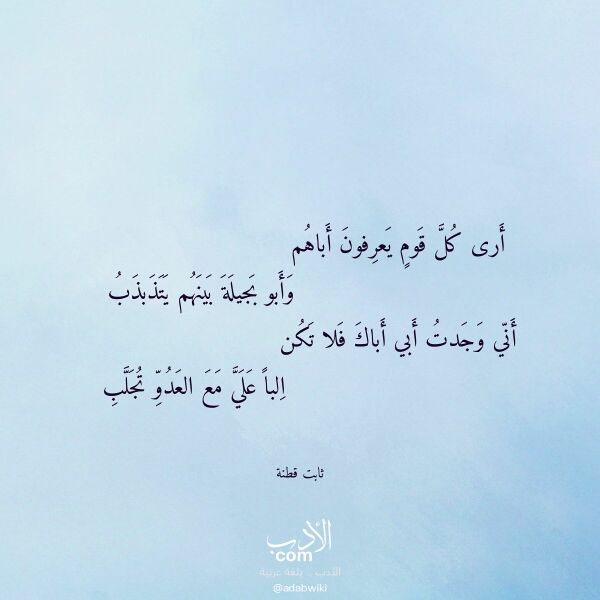 أَرى كُلَّ قَومٍ يَعرِفونَ أَباهُم
وَأَبو بَجيلَةَ بَينَهُم يَتَذَبذَبُ
أَنّي وَجَدتُ أَبي أَباكَ فَلا تَكُن
اِلباً عَلَيَّ مَعَ العَدُوِّ تُجَلَّبِ
ثابت قطنة
الأدب
com
الأدب .. بلغة عربية
@adabwiki